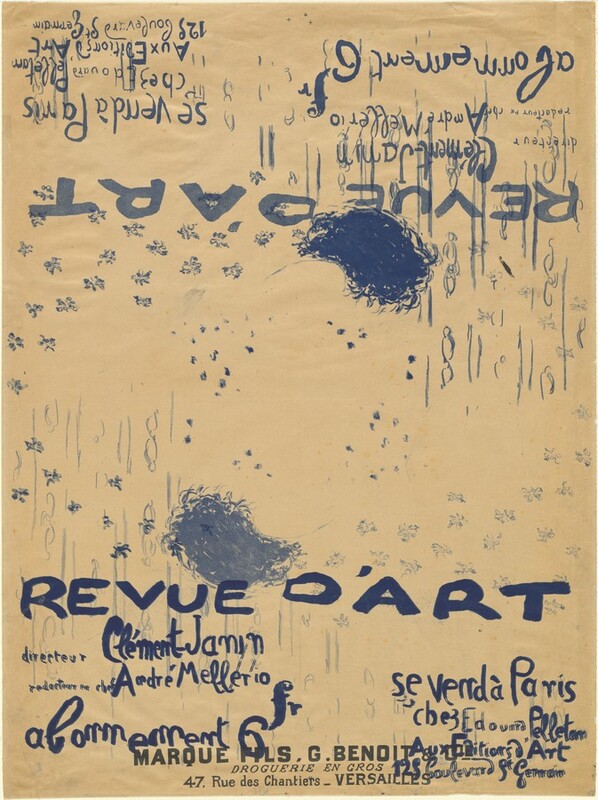 REVUE D'ART
directeur Clément-Janin
redacteur en chef André Mellério
abonnement 6 fr
se vend à Paris
chez Edouard Pelletan
Aux Editions d'Art
125 Boulevard St Germain
REVUE D'ART
directeur Clément-Janin
redacteur en chef André Mellério
abonnement 6 fr
se vend à Paris
chez Edouard Pelletan
Aux Editions d'Art
125 Boulevard St Germain
MARQUE FILS, G. BENOIT
DROGUERIE EN GROS
47, Rue des Chantiers _ VERSAILLES